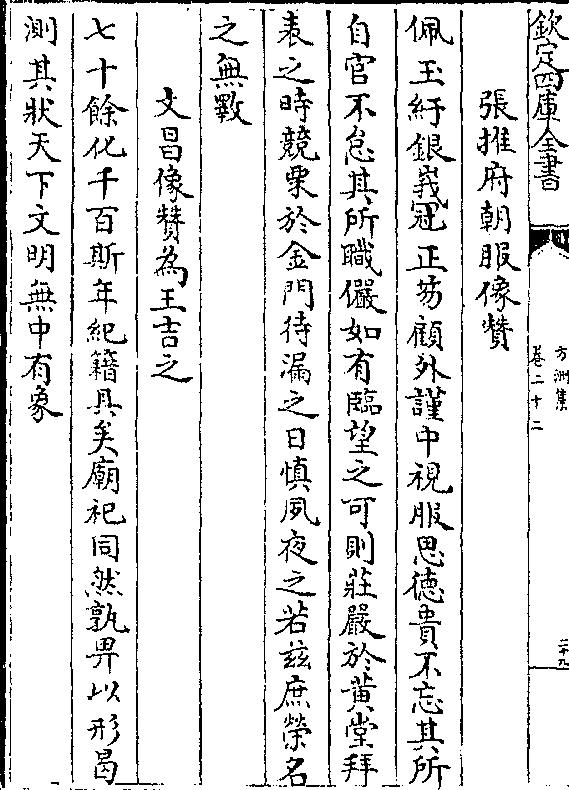 欽定四庫全書
方洲集
卷二十二
二十九
張推府朝服像贊
佩玉紆銀峩冠正笏顧外謹中視服思德貴不忘其所
自官不怠其所職儼如有臨望之可則莊嚴於黃堂拜
表之時競栗於金門待漏之日慎夙夜之若兹庶榮名
之無斁
文昌像贊為王吉之
七十餘化千百斯年紀籍具矣廟祀同然孰畀以形曷
測其狀天下文明無中有象